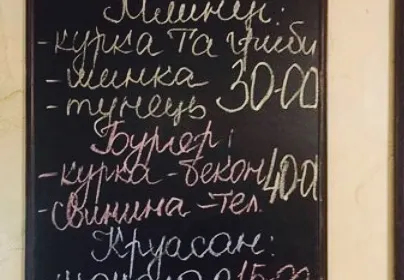 Млинці:
-курка та гриби
-шинка 30-00
-тунець
Бургер:
-курка-бекон 40-0
-свинина-тел.
Круасан:
15-00